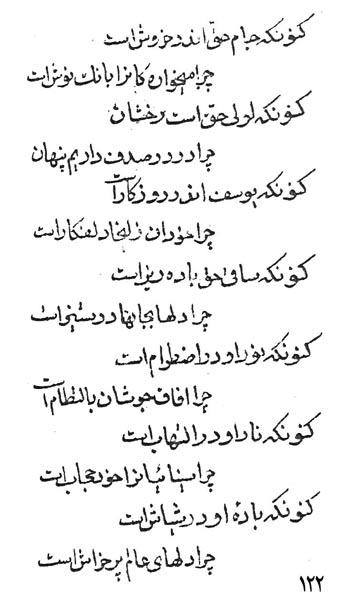 کنونکه جام حق اندر خروش است
چرا میخواره کانرا بانک نوش است
کنونکه لولی حق است رخشان
چرا در در صدف داریم پنهان
کنونکه یوسف اندر روزکار است
چرا خود از زلیخا دلفکار است
کنونکه ساقی حق باده ریز است
چرا دلها بجانها در ستیز است
کنونکه نور او در اضطرام است
چرا افاق جوشان بالنظام است
کنونکه نار او در التهاب است
چرا سینائیانرا خود حجاب است
کنونکه بادۀ او در ریشاش است
چرا دلهای عالم پر خراش است
۱۲۲